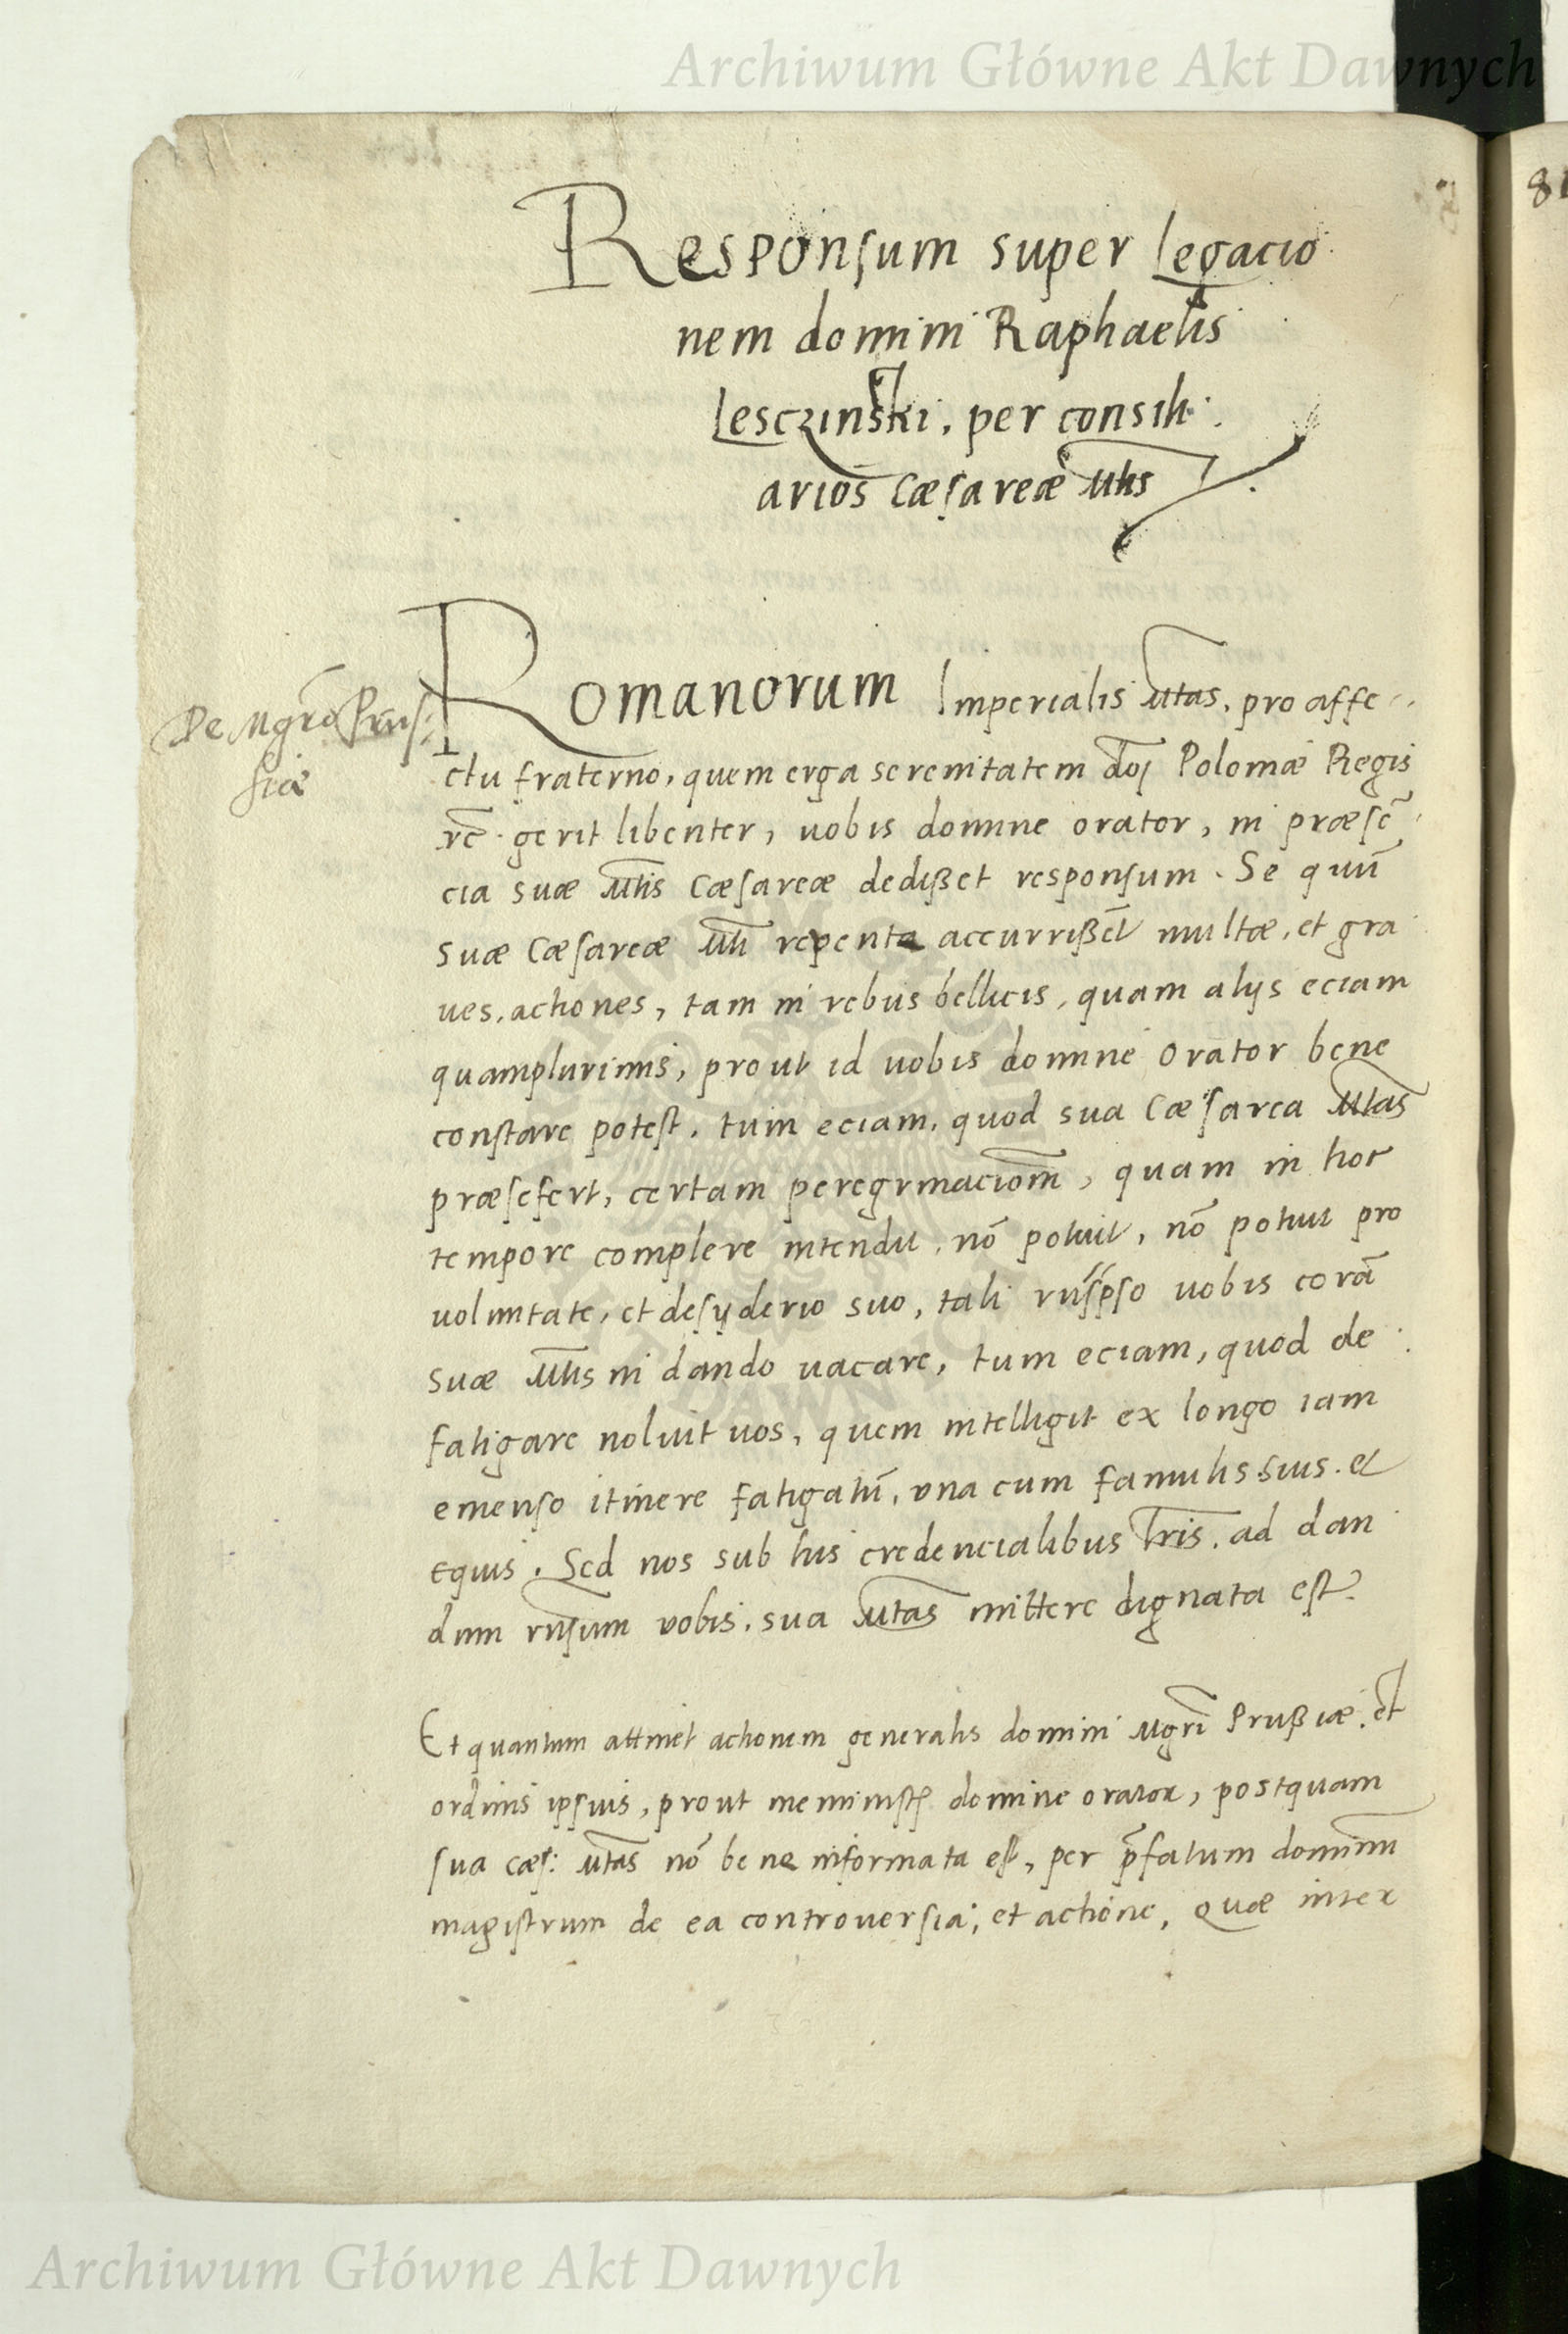 Archiwum Główne Akt Dawnych
81
Responsum super legacio
nem domini Raphaelis
Lesczinski, per consili
arios Cæsareæ Mtis
De Mgro Prus
siæ
Romanorum Imperialis Mtas, pro affe
ctu fraterno, quem erga serenitatem doi Poloniæ Regis
rē gerit libenter, uobis domine orator, in præsē
cia suæ Mtis Cæsareæ dedißet responsum. Se quū
suæ Cæsareæ Mti repente accurrißēt multæ, et gra
ues, actiones, tam in rebus bellicis, quam alijs eciam
quamplurimis, prout id uobis domine orator bene
constare potest, tum eciam, quod sua Cæsarea Mtas
præsefert, certam peregrinaciom̄, quam in hoc
tempore complere intendit, nō potuit, nō potuit pro
uoluntate, et desyderio suo, tali rn̄spso uobis corā
suæ Mtis in dando uacare, tum eciam, quod de
fatigare noluit uos, quem intelligit ex longo iam
emenso itinere fatigatū, vna cum famulis suis et
equis. Sed nos sub his credencialibus lris. ad dan
dum rn̄sum vobis, sua Mtas mittere dignata est.
Et quantum attinet actionem generalis domini Mgri Prußiæ, et
ordinis ipsius, prout meministis domine orator, postquam
sua cæs: Mtas nō bene informata est, per p̄fatum dominum
magistrum de ea controuersia, et actione, quæ inter
Archiwum Główne Akt Dawnych